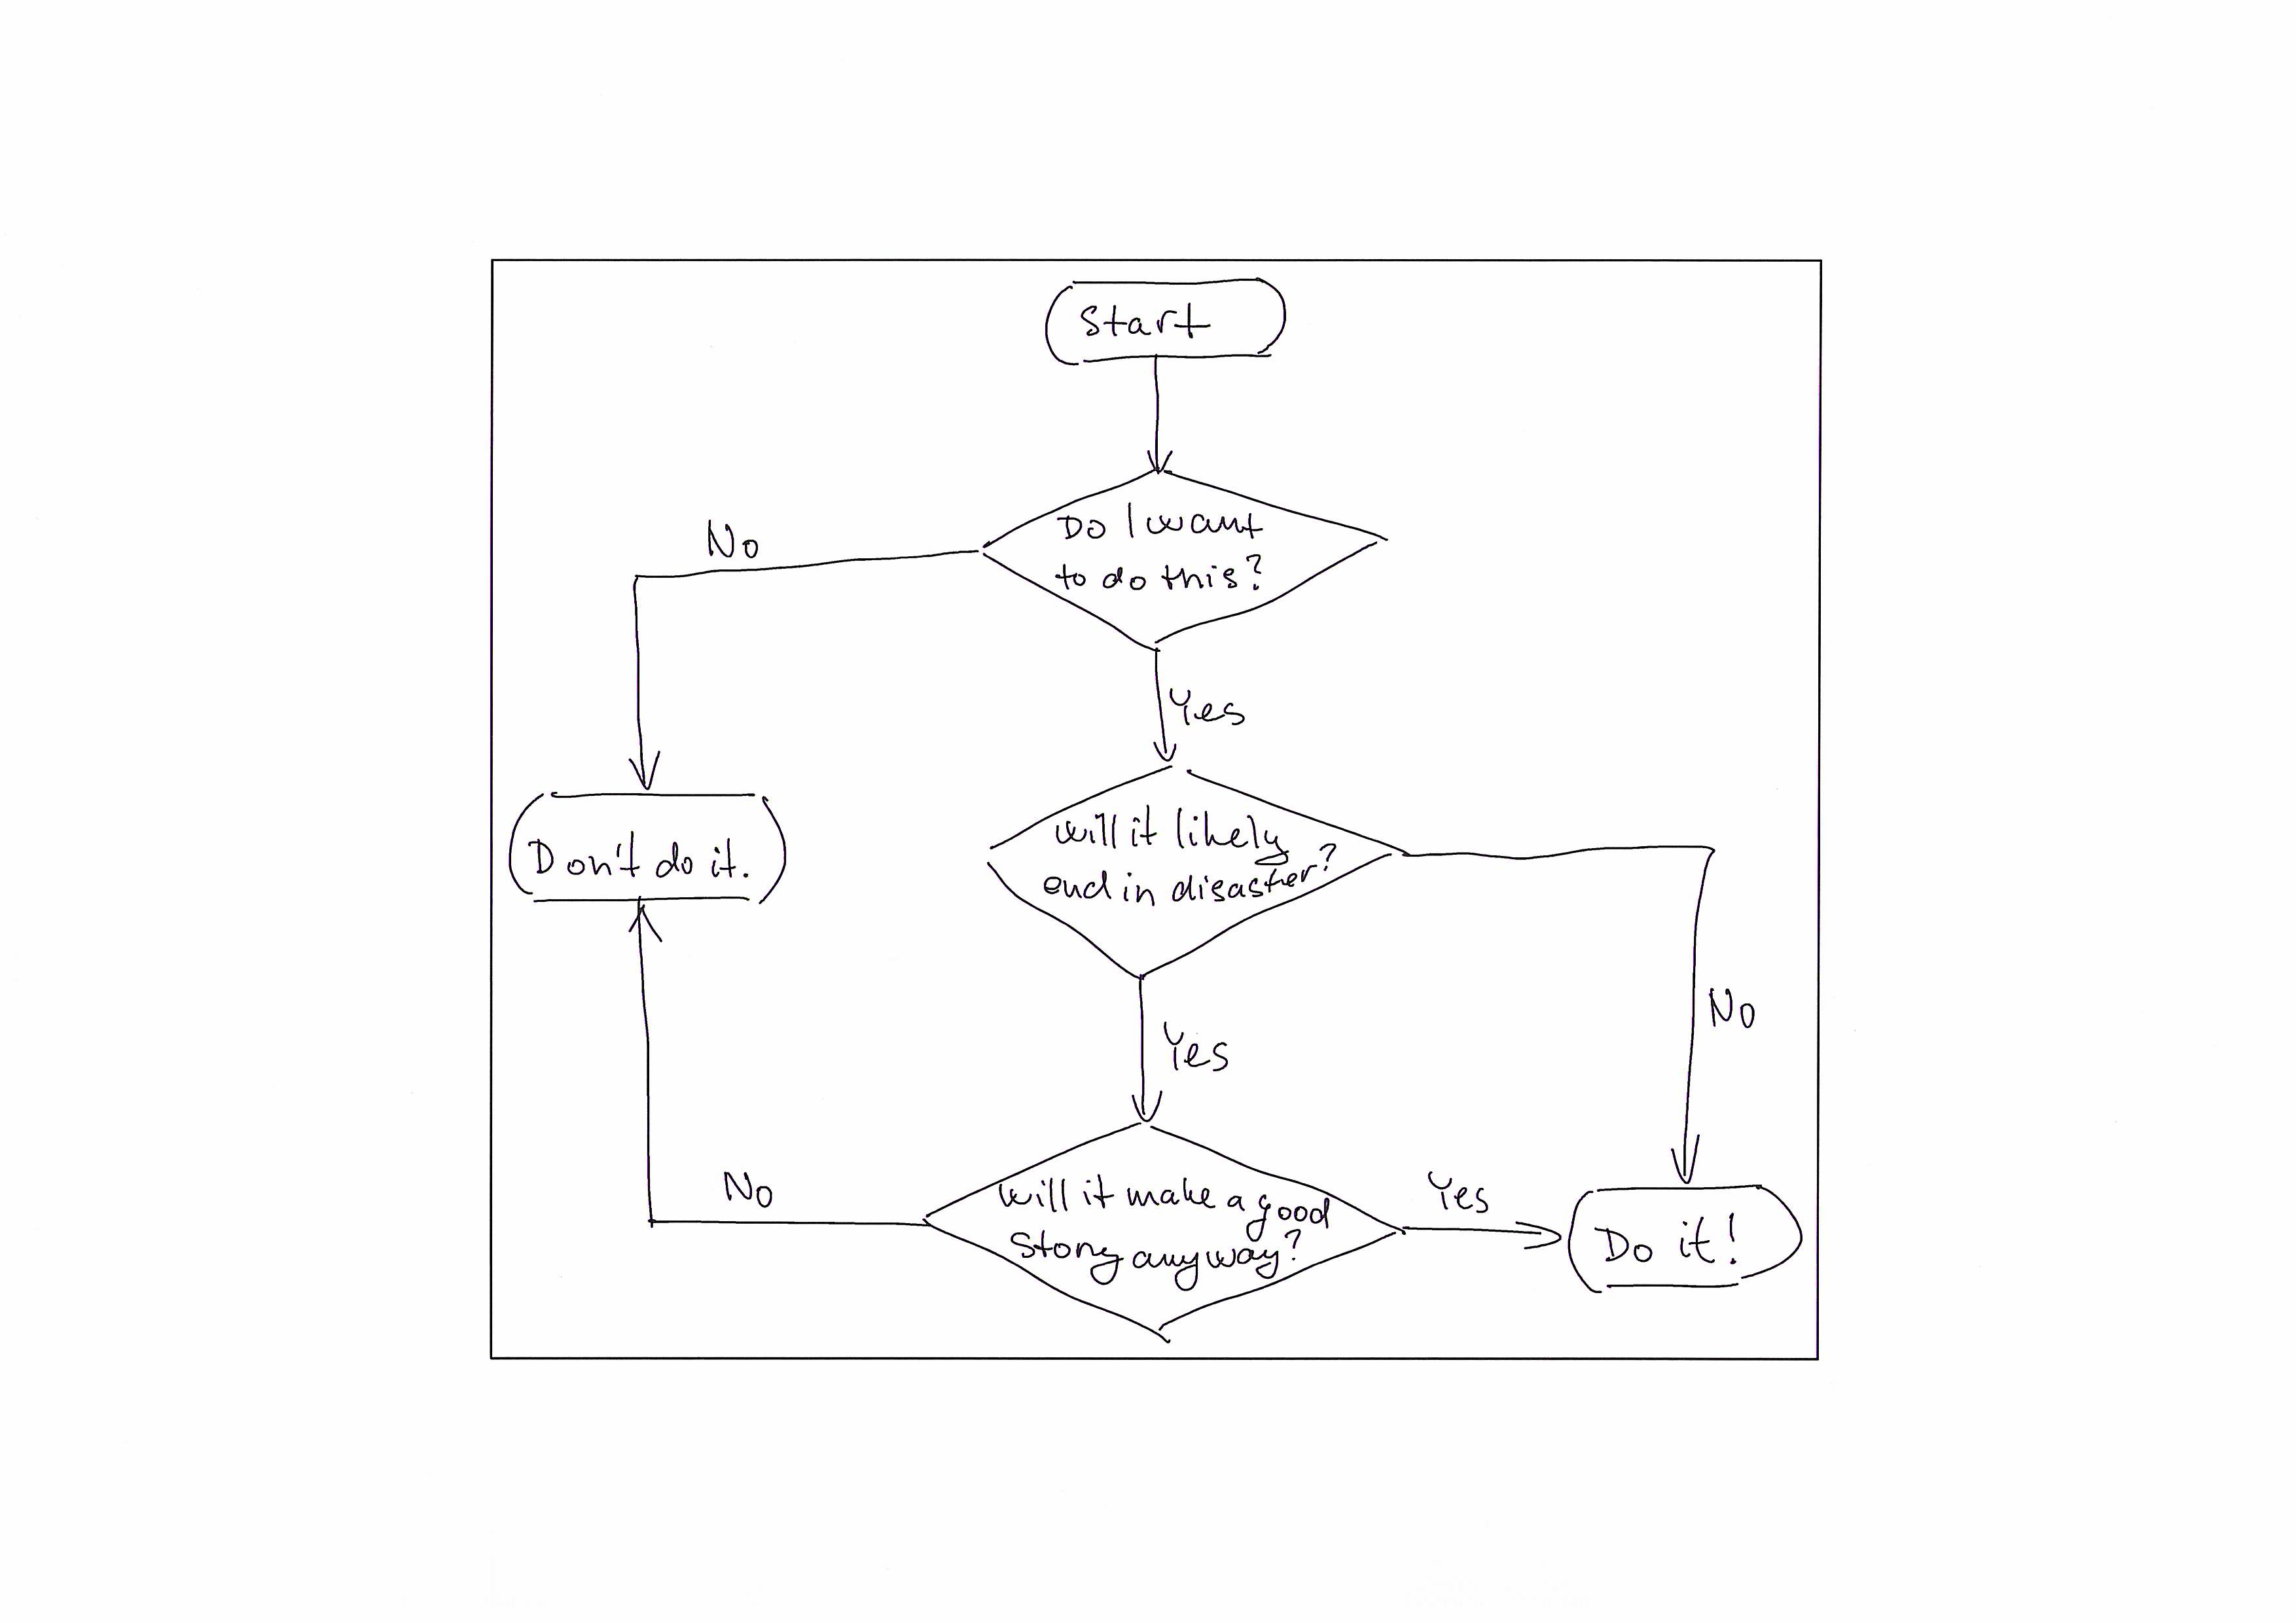 Start
Do I want
to do this?
No
Yes
Don't do it.
Will it likely
end in disaster?
No
Yes
Will it make a good
Story anyway?
No
Yes
Do it!